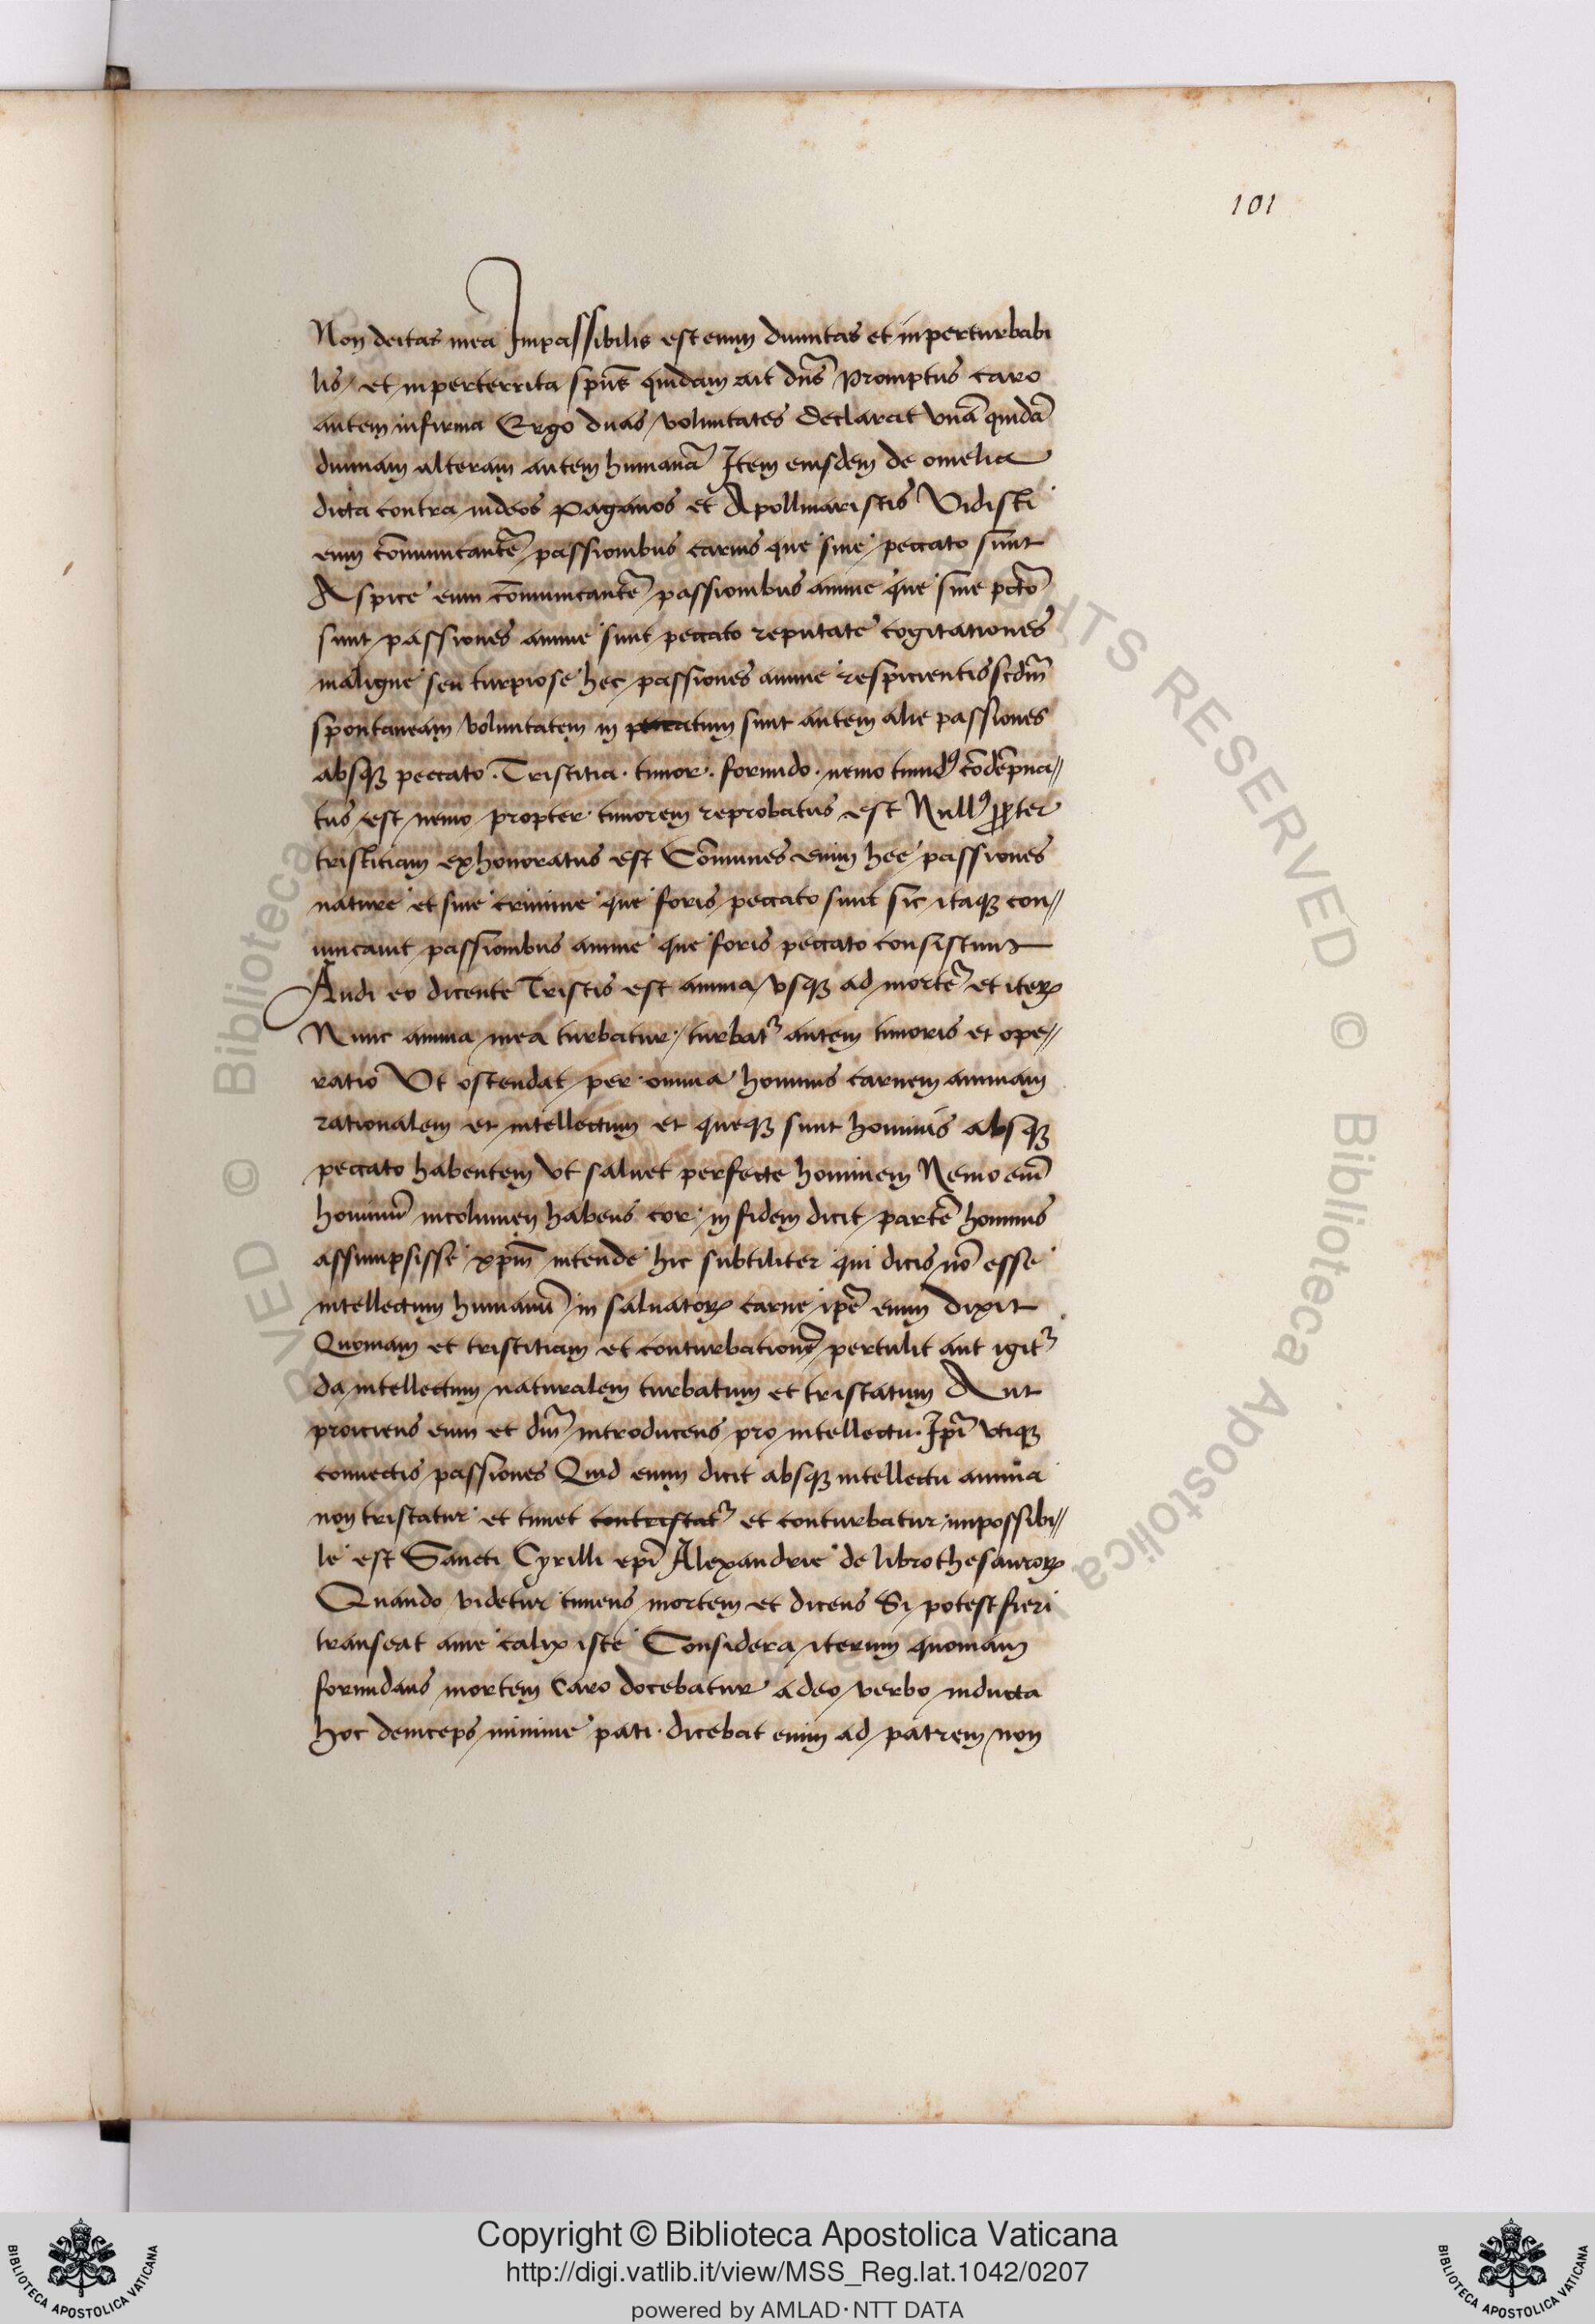 101
Non deitas mea Impassibilis est enim diuinitas et inperturbabi
lis / et inperterrita sp̄us quidam ait dn̄s Promptus caro
autem infirma Ergo duas voluntates declarat vnā quidā
diuinam alteram autem humanā Item eiusdem de omelia
dicta contra iudeos Paganos et Apollinaristis Vidisti
eum cōmunicantē passionibus carnis que sine peccato sunt
Aspice eum cōmunicantē passionibus anime que sine pctō
sunt passiones anime sunt peccato reputate cogitationes
maligne seu turpiose hec passiones anime respicientis scdm̄
spontaneam voluntatem in peccatum sunt autem alie passiones
absqꝫ peccato . Tristitia . timor . formido . nemo timidꝰ cōdēpna//
tus est nemo propter timorem reprobatus est Nullꝰ ꝓpter
tristitiam exhonoratus est Cōmunes enim hee passiones
nature et sine crimine que foris peccato sunt sic itaqꝫ con//
unicauit passionibus anime que foris peccato consistunt
Audi eo dicente Tristis est anima vsqꝫ ad mortē et iterꝝ
Nunc anima mea turbatur / turbat᷑ autem timoris et ope//
ratio Vt ostendat per omnia hominis carnem animam
rationalem et intellectum et queqꝫ sunt hominis absqꝫ
peccato habentem vt saluet perfecte hominem Nemo enī
hominū incolumen habens cor in fidem dicit partē hominis
assumpsisse xpm̄ intende hic subtiliter qui dicis nō esse
intellectum humanū in saluatorꝝ carne ip̄e enim dixit
Quoniam et tristitiam et conturbationē pertulit aut igit᷑
da intellectum naturalem turbatum et tristatum Aut
proiciens eum et dm̄ introducens pro intellectu . Ip̄i vtiqꝫ
connectis passiones Quid enim dicit absqꝫ intellectu anima
non tristatur et timet contristat᷑ et conturbatur impossibi//
le est Sancti Cyrilli ep̄i Alexandrie de libro thesaurorꝝ
Quando videtur timens mortem et dicens Si potest fieri
transeat ame calix iste Considera iterum quoniam
formidans mortem Caro docebatur adeo verbo inducta
hoc deinceps minime pati . dicebat enim ad patrem non
© Biblioteca Apostolica
RIGHTS RESERVED © Biblioteca Apostolica
Copyright © Biblioteca Apostolica Vaticana
http://digi.vatlib.it/view/MSS_Reg.lat.1042/0207
powered by AMLAD·NTT DATA
BIBLIOTECA APOSTOLICA VATICANA
BIBLIOTECA APOSTOLICA VATICANA